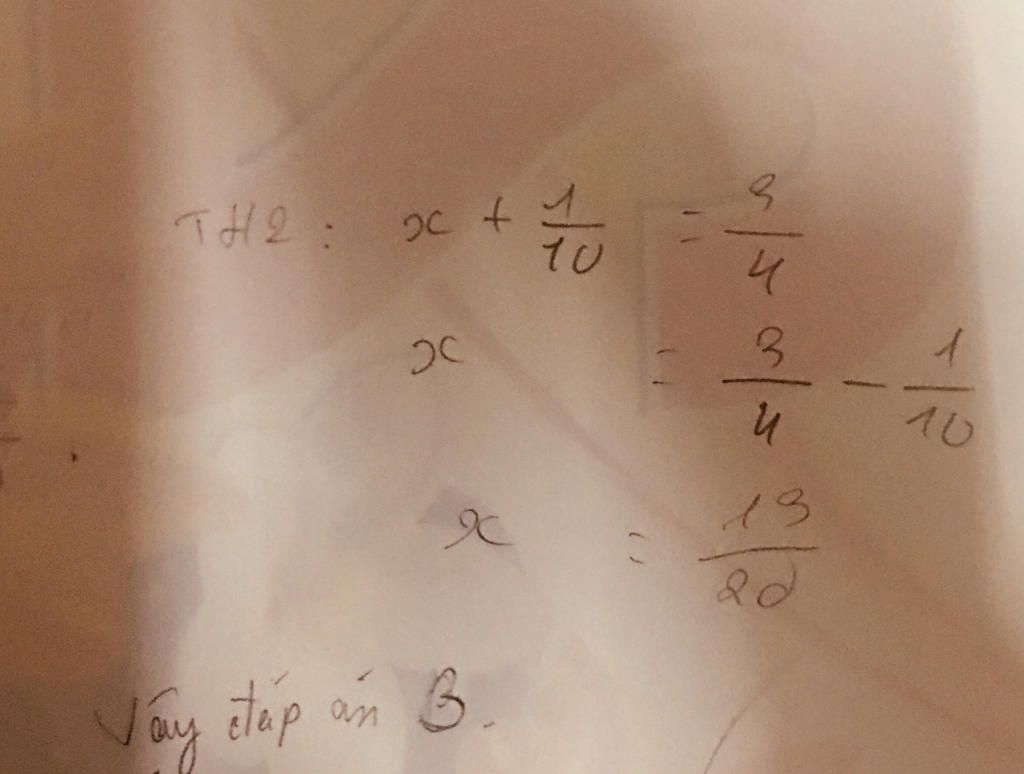 TH2: x + 1/10 = 3/4
x = 3/4 - 1/10
x = 13/20
Vậy đáp án B.